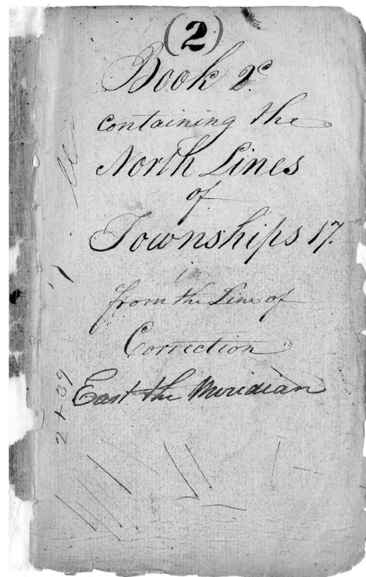 (2)
Book 2ᵈ
containing the
North Lines
of
Townships 17.
in
from the Line of
Correction
East the Meridian
2+39